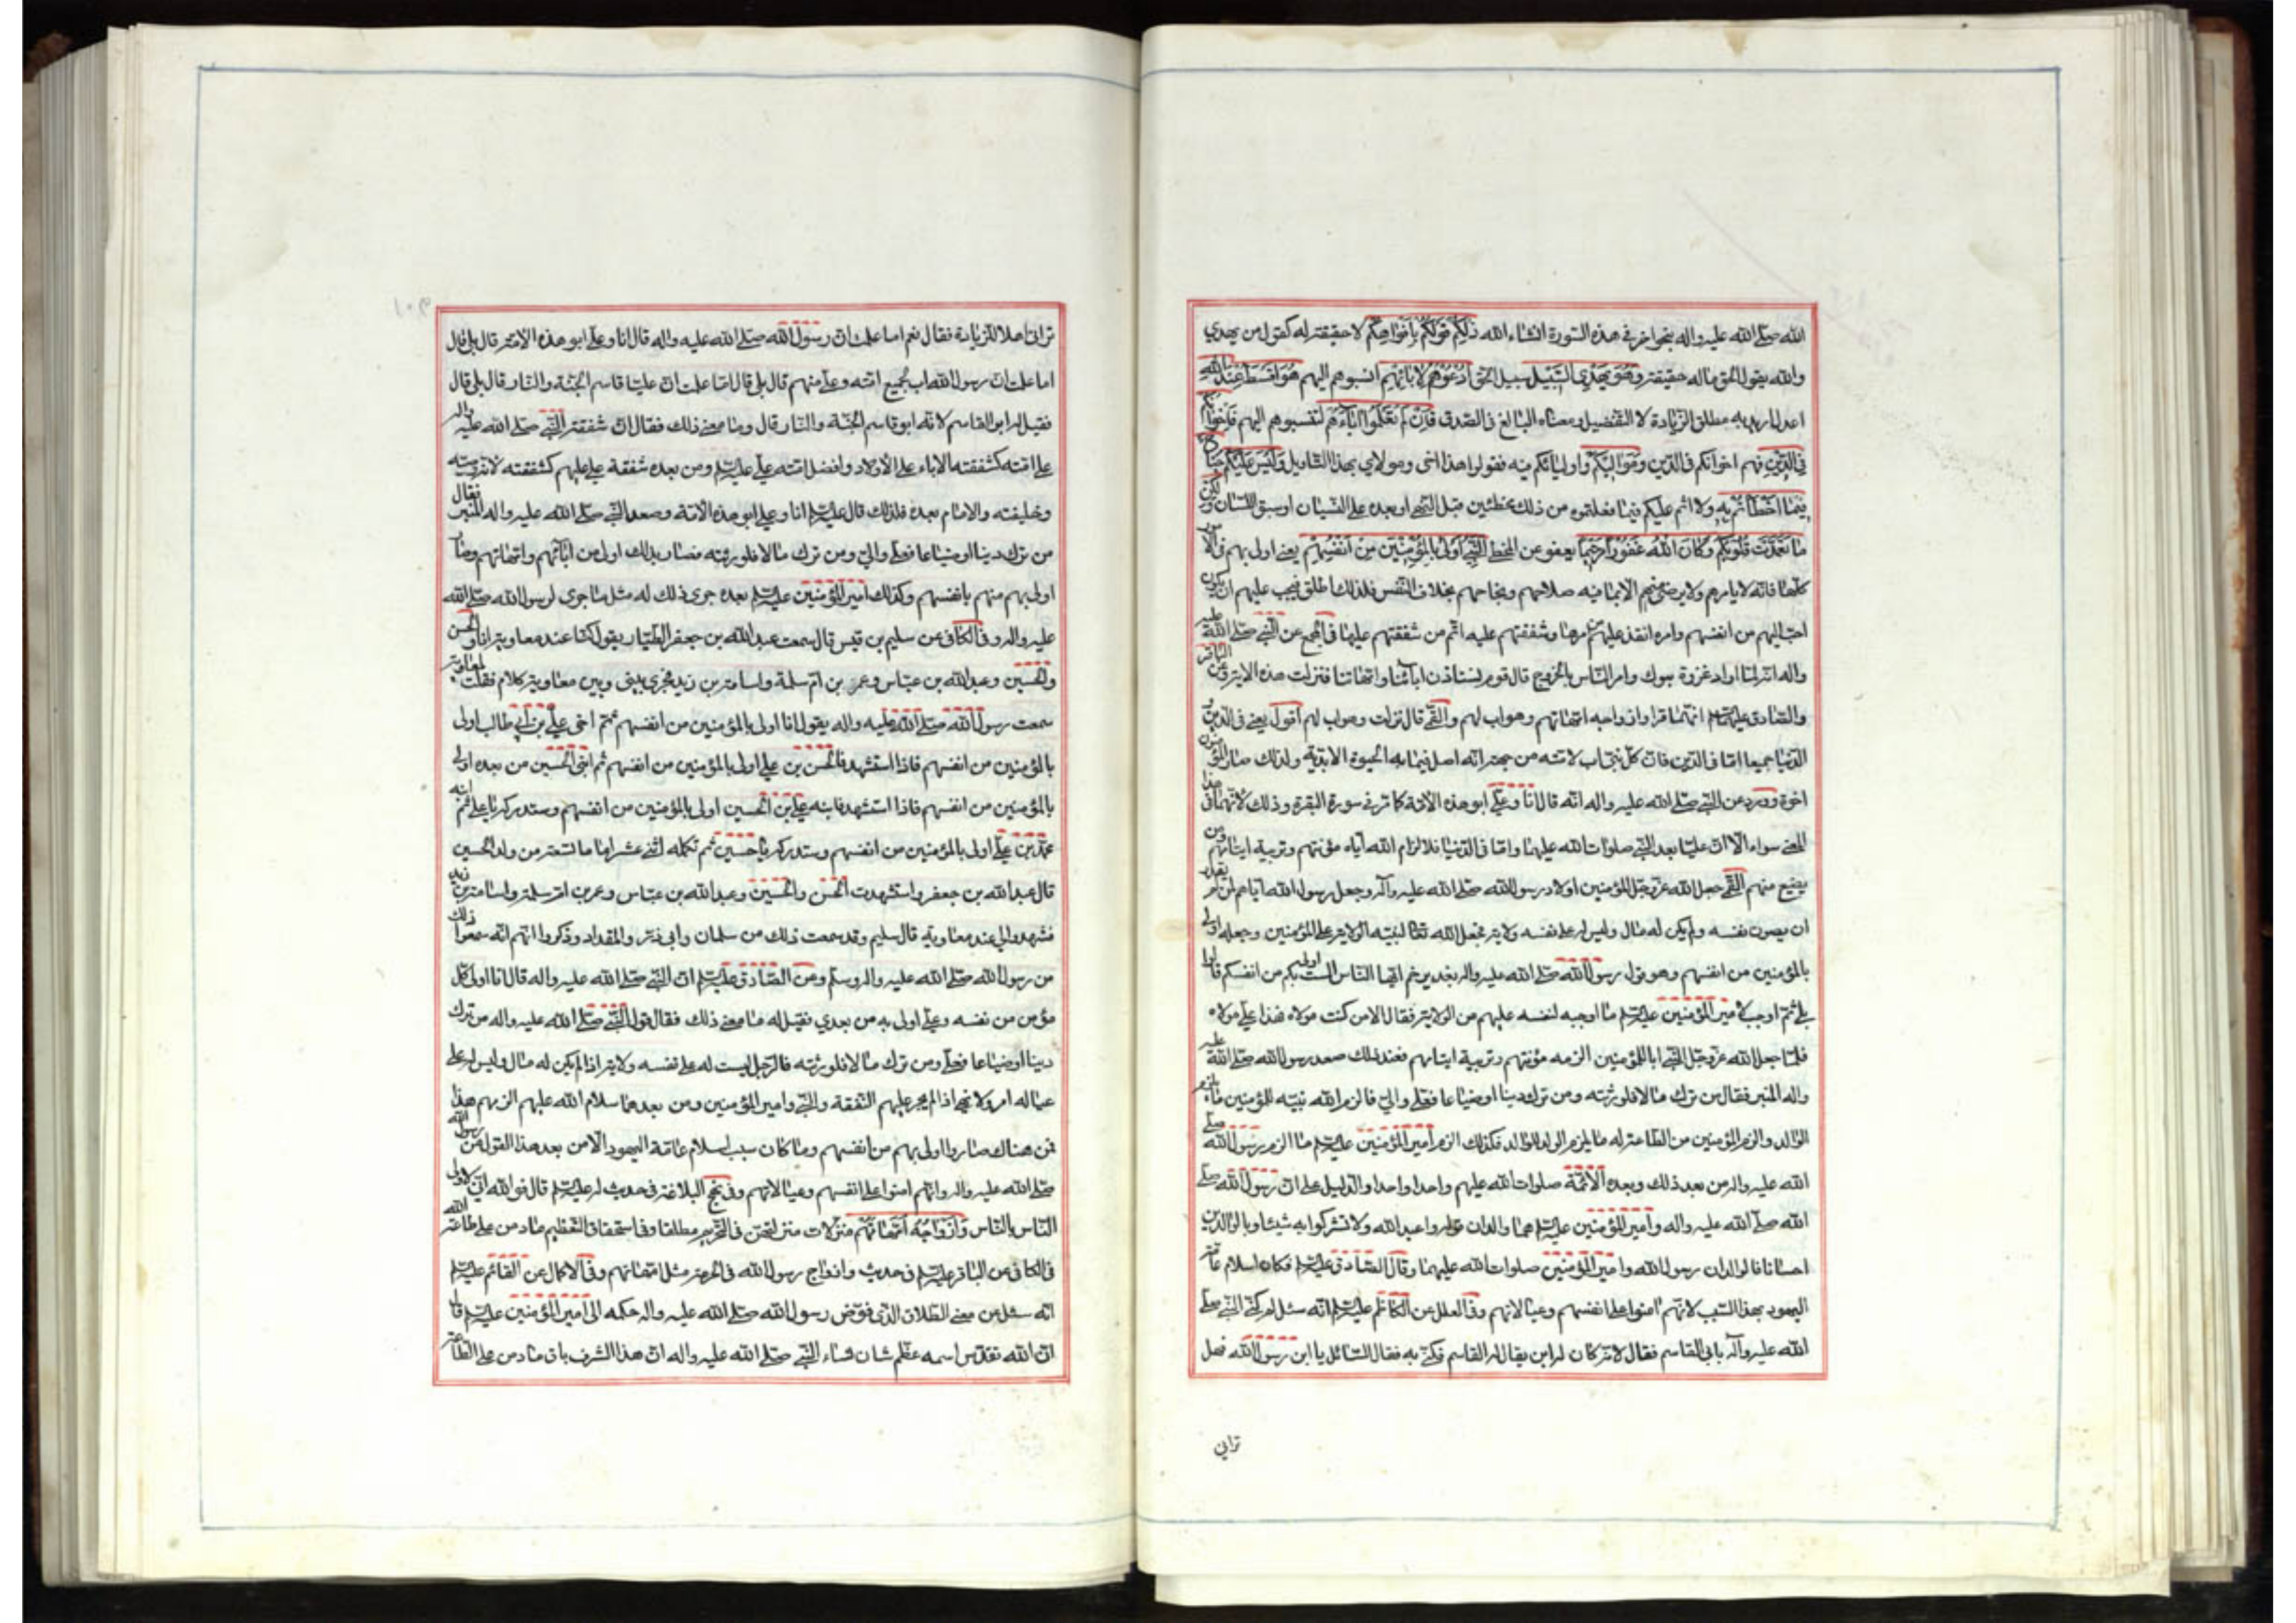 الله صلى الله عليه واله بنحو اخر في هذه السورة انشاء الله ذٰلِكُمْ قَوْلُكُمْ بِأَفْوَاهِكُمْ لا حقيقة له كقول من يهذي
والله يقول الحق ما له حقيقة وَهُوَ يَهْدِي السَّبِيلَ سبيل الحق أُدْعُوهُمْ لِآبَائِهِمْ انسبوهم اليهم هُوَ أَقْسَطُ عِنْدَ اللهِ
اعدل اريد به مطلق الزيادة لا التفضيل ومعناه البالغ في الصدق فَإِنْ لَمْ تَعْلَمُوا آبَاءَهُمْ لتنسبوهم اليهم فَإِخْوَانُكُمْ
فِي الدِّينِ فهم اخوانكم في الدين وَمَوَالِيكُمْ واوليائكم فيه فقولوا هذا اخي ومولاي بهذا التاويل وَلَيْسَ عَلَيْكُمْ جُنَاحٌ
فِيمَا أَخْطَأْتُمْ بِهِ ولا اثم عليكم فيما فعلتموه من ذلك مخطئين قبل النهي او بعده على النسيان او سبق اللسان وَلٰكِنْ
مَا تَعَمَّدَتْ قُلُوبُكُمْ وَكَانَ اللهُ غَفُورًا رَحِيمًا يعفو عن المخطي النَّبِيُّ أَوْلَى بِالْمُؤْمِنِينَ مِنْ أَنْفُسِهِمْ يعني اولى بهم في الامور
كلها فانه لا يامرهم ولا يرضى منهم الا بما فيه صلاحهم ونجاحهم بخلاف النفس فلذلك اطلق فيجب عليهم ان يكون
احب اليهم من انفسهم وامره انفذ عليهم من امرها وشفقتهم عليه اتم من شفقتهم عليها في المجمع عن النبي صلى الله عليه
واله انه لما اراد غزوة تبوك وامر الناس بالخروج قال قوم نستاذن ابائنا وامهاتنا فنزلت هذه الاية وعن الباقر
والصادق عليهما السلام انهما قرا وازواجه امهاتهم وهو اب لهم والقمي قال نزلت وهو اب لهم اقول يعني في الدين و
الدنيا جميعا اما في الدين فان كل نبي اب لامته من جهة انه اصل فيما به الحيوة الابدية ولذلك صار المؤمنون
اخوة وورد عن النبي صلى الله عليه واله انه قال انا وعلي ابو هذه الامة كما مر في سورة البقرة وذلك لانهما في هذا
المعنى سواء الا ان عليا بعد النبي صلوات الله عليهما واما في الدنيا فلالزام الله اياه مؤنتهم وتربية ايتامهم ومن
يضيع منهم القمي جعل الله عز وجل المؤمنين اولاد رسول الله صلى الله عليه وآله وجعل رسول الله اباهم لمن لم يقدر
ان يصون نفسه ولم يكن له مال وليس له على نفسه ولاية فجعل الله تعالى لنبيه الولاية على المؤمنين وجعله اولى
بالمؤمنين من انفسهم وهو قول رسول الله صلى الله عليه واله بغدير خم ايها الناس الست اولى بكم من انفسكم قالوا
بلى ثم اوجب لامير المؤمنين عليه السلام ما اوجبه لنفسه عليهم من الولاية فقال الا من كنت مولاه فهذا علي مولاه
فلما جعل الله عز وجل النبي ابا للمؤمنين الزمه مؤنتهم وتربية ايتامهم فعند ذلك صعد رسول الله صلى الله عليه
واله المنبر فقال من ترك مالا فلورثته ومن ترك دينا او ضياعا فعلي والي فالزم الله نبيه للمؤمنين ما يلزم
الوالد والزم المؤمنين من الطاعة له ما يلزم الولد للوالد فكذلك الزم امير المؤمنين عليه السلام ما الزم رسول الله صلى
الله عليه واله من بعد ذلك وبعده الائمة صلوات الله عليهم واحدا واحدا والدليل على ان رسول الله صلى
الله صلى الله عليه واله وامير المؤمنين عليه السلام هما والدان قوله واعبدوا الله ولا تشركوا به شيئا وبالوالدين
احسانا فالوالدان رسول الله وامير المؤمنين صلوات الله عليهما وقال الصادق عليه السلام فكان اسلام عامة
اليهود بهذا السبب لانهم امنوا على انفسهم وعيالاتهم وفي العلل عن الكاظم عليه السلام انه سئل لم كني النبي صلى
الله عليه وآله بابي القاسم فقال لانه كان له ابن يقال له القاسم فكني به فقال السائل يا ابن رسول الله فهل
تراني
تراني اهلا للزيادة فقال نعم اما علمت ان رسول الله صلى الله عليه واله قال انا وعلي ابو هذه الامة قال بلى قال
اما علمت ان رسول الله اب لجميع امته وعلي منهم قال بلى قال اما علمت ان عليا قاسم الجنة والنار قال بلى قال
فقيل له ابو القاسم لانه ابو قاسم الجنة والنار قال وما معنى ذلك فقال ان شفقة النبي صلى الله عليه واله
على امته كشفقة الاباء على الاولاد وافضل امته علي عليه السلام ومن بعده شفقة علي عليهم كشفقته لانه وصيه
وخليفته والامام بعده فلذلك قال عليه السلام انا وعلي ابو هذه الامة وصعد النبي صلى الله عليه واله المنبر فقال
من ترك دينا او ضياعا فعلي والي ومن ترك مالا فلورثته فصار بذلك اولى من ابائهم وامهاتهم وصار
اولى بهم منهم بانفسهم وكذلك امير المؤمنين عليه السلام بعده جرى ذلك له مثل ما جرى لرسول الله صلى الله
عليه واله وفي الكافي عن سليم بن قيس قال سمعت عبد الله بن جعفر الطيار يقول كنا عند معاوية انا والحسن
والحسين وعبد الله بن عباس وعمر بن ام سلمة واسامة بن زيد فجرى بيني وبين معاوية كلام فقلت لمعاوية
سمعت رسول الله صلى الله عليه واله يقول انا اولى بالمؤمنين من انفسهم ثم اخي علي بن ابي طالب اولى
بالمؤمنين من انفسهم فاذا استشهد فالحسن بن علي اولى بالمؤمنين من انفسهم ثم ابني الحسين من بعده اولى
بالمؤمنين من انفسهم فاذا استشهد فابنه علي بن الحسين اولى بالمؤمنين من انفسهم وستدركه يا علي ثم ابنه
محمد بن علي اولى بالمؤمنين من انفسهم وستدركه يا حسين ثم تكمله اثنى عشر اماما تسعة من ولد الحسين
قال عبد الله بن جعفر واستشهدت الحسن والحسين وعبد الله بن عباس وعمر بن ام سلمة واسامة بن زيد
فشهدوا لي عند معاوية قال سليم وقد سمعت ذلك من سلمان وابي ذر والمقداد وذكروا انهم انه سمعوا ذلك
من رسول الله صلى الله عليه واله وسلم وعن الصادق عليه السلام ان النبي صلى الله عليه واله قال انا اولى بكل
مؤمن من نفسه وعلي اولى به من بعدي فقيل له ما معنى ذلك فقال قول النبي صلى الله عليه واله من ترك
دينا او ضياعا فعلي ومن ترك مالا فلورثته فالرجل ليست له على نفسه ولاية اذا لم يكن له مال وليس له على
عياله امر ولا نهي اذا لم يجر عليهم النفقة والنبي وامير المؤمنين ومن بعدهما سلام الله عليهم الزمهم هذا
فمن هناك صاروا اولى بهم من انفسهم وما كان سبب اسلام عامة اليهود الا من بعد هذا القول من رسول الله
صلى الله عليه واله وانهم امنوا على انفسهم وعيالاتهم وفي نهج البلاغة في حديث له عليه السلام قال فوالله اني لاولى
الناس بالناس وَأَزْوَاجُهُ أُمَّهَاتُهُمْ منزلات منزلتهن في التحريم مطلقا وفي استحقاق التعظيم ما دمن على طاعة الله
في الكافي عن الباقر عليه السلام في حديث وازواج رسول الله في الحرمة مثل امهاتهم وفي الاكمال عن القائم عليه السلام
انه سئل عن معنى الطلاق الذي فوض رسول الله صلى الله عليه واله حكمه الى امير المؤمنين عليه السلام قال
ان الله تقدس اسمه عظم شان نساء النبي صلى الله عليه واله ان هذا الشرف باق ما دمن على الطاعة